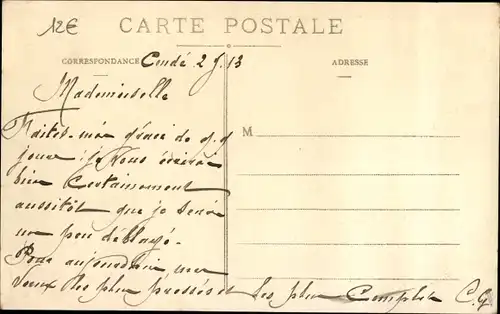 12€
CARTE POSTALE
CORRESPONDANCE
ADRESSE
Condé 2 J. 13
Mademoiselle
M
Faites-moi grâce de q.q
jours : je vous écrirai
bien certainement
aussitôt que je serai
un peu déblayé.
Pour aujourd'hui, mes
vœux les plus pressés et les plus complets C. G